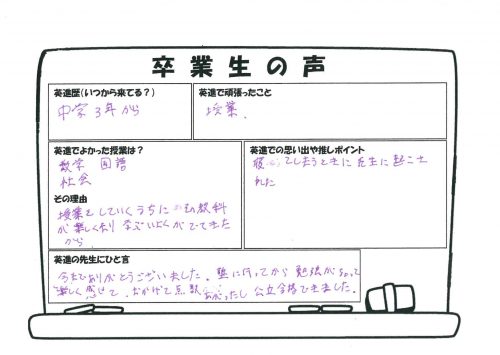 卒業生の声
英進歴(いつから来てる?)
中学3年から
英進で頑張ったこと
授業.
英進でよかった授業は?
数学 国語
社会
その理由
授業をしていくうちに 教科
が楽しくなり 学ぶいよくがでてきた
から
英進での思い出や推しポイント
寝 てしまうときに先生に起こさ
れた
英進の先生にひと言
今までありがとうございました。塾に行ってから 勉強が
楽しく感じて、おかげで点数 あがったし 公立合格できました。